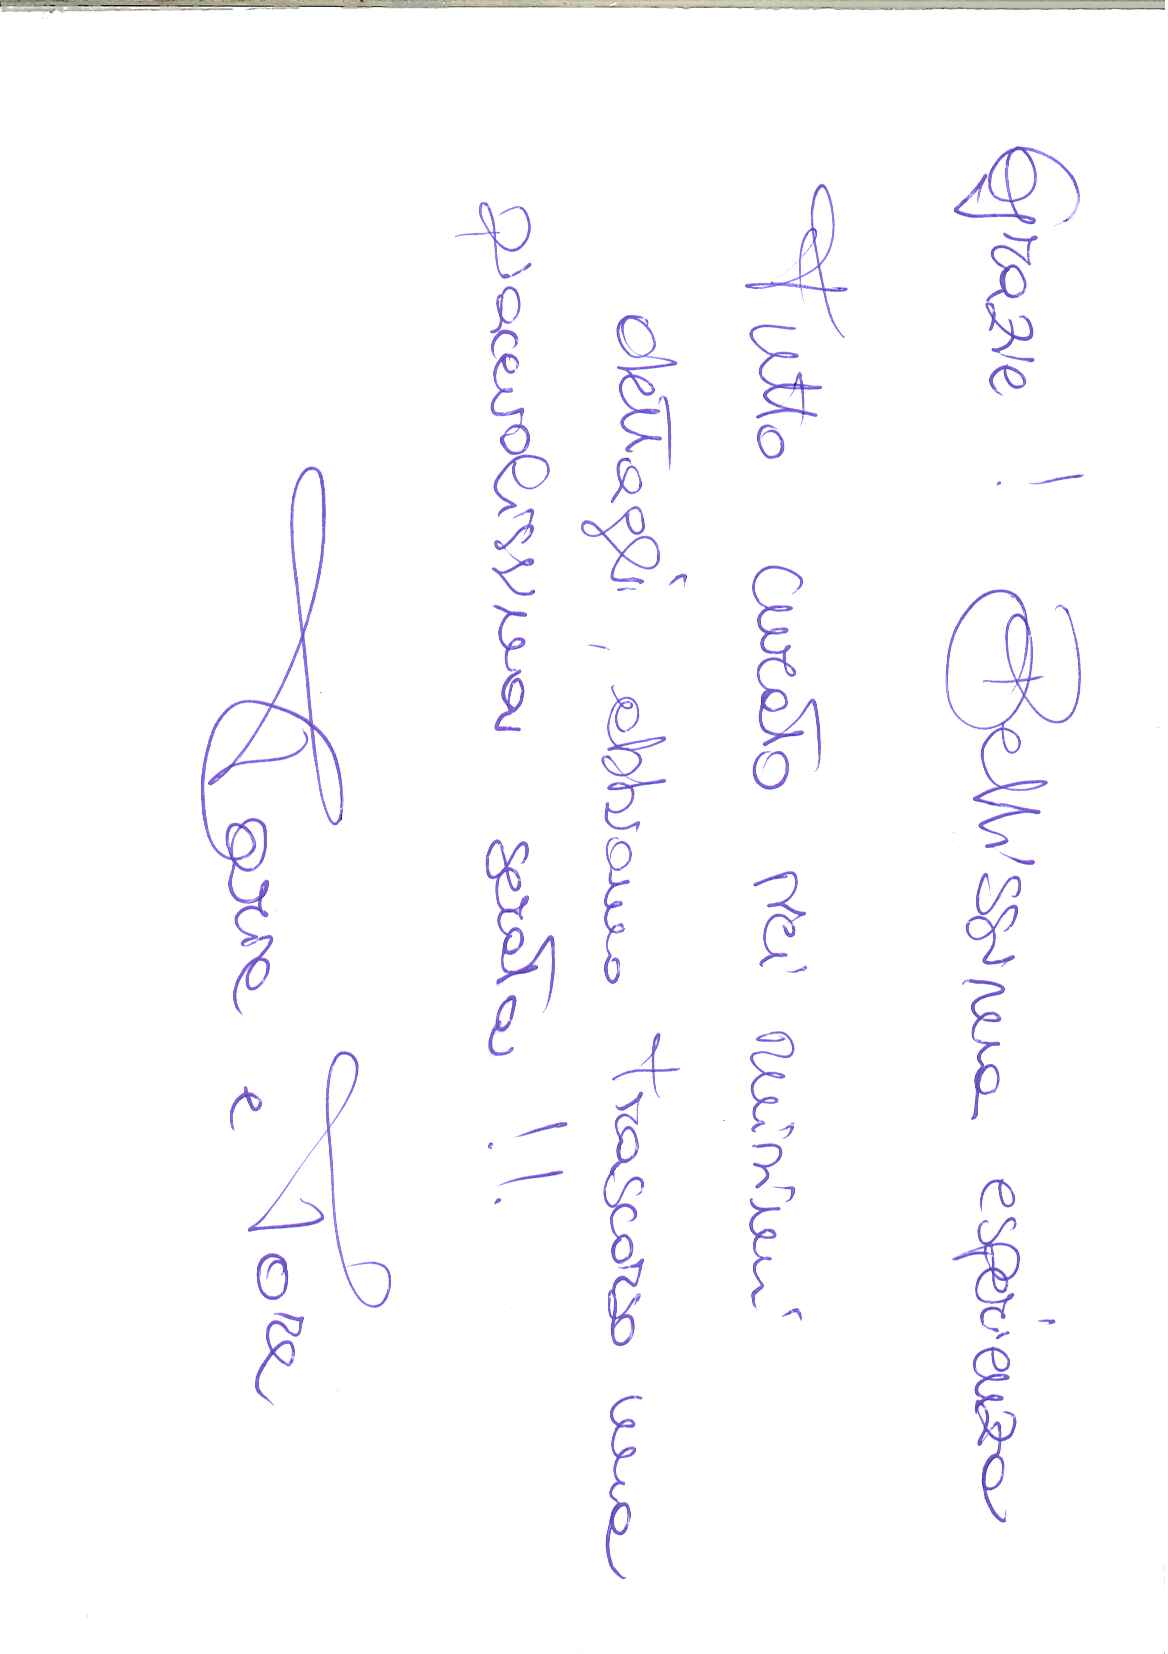 Grazie! Bellissima esperienza
Tutto curato nei minimi
dettagli, abbiamo trascorso una
piacevolissima serata!!
e